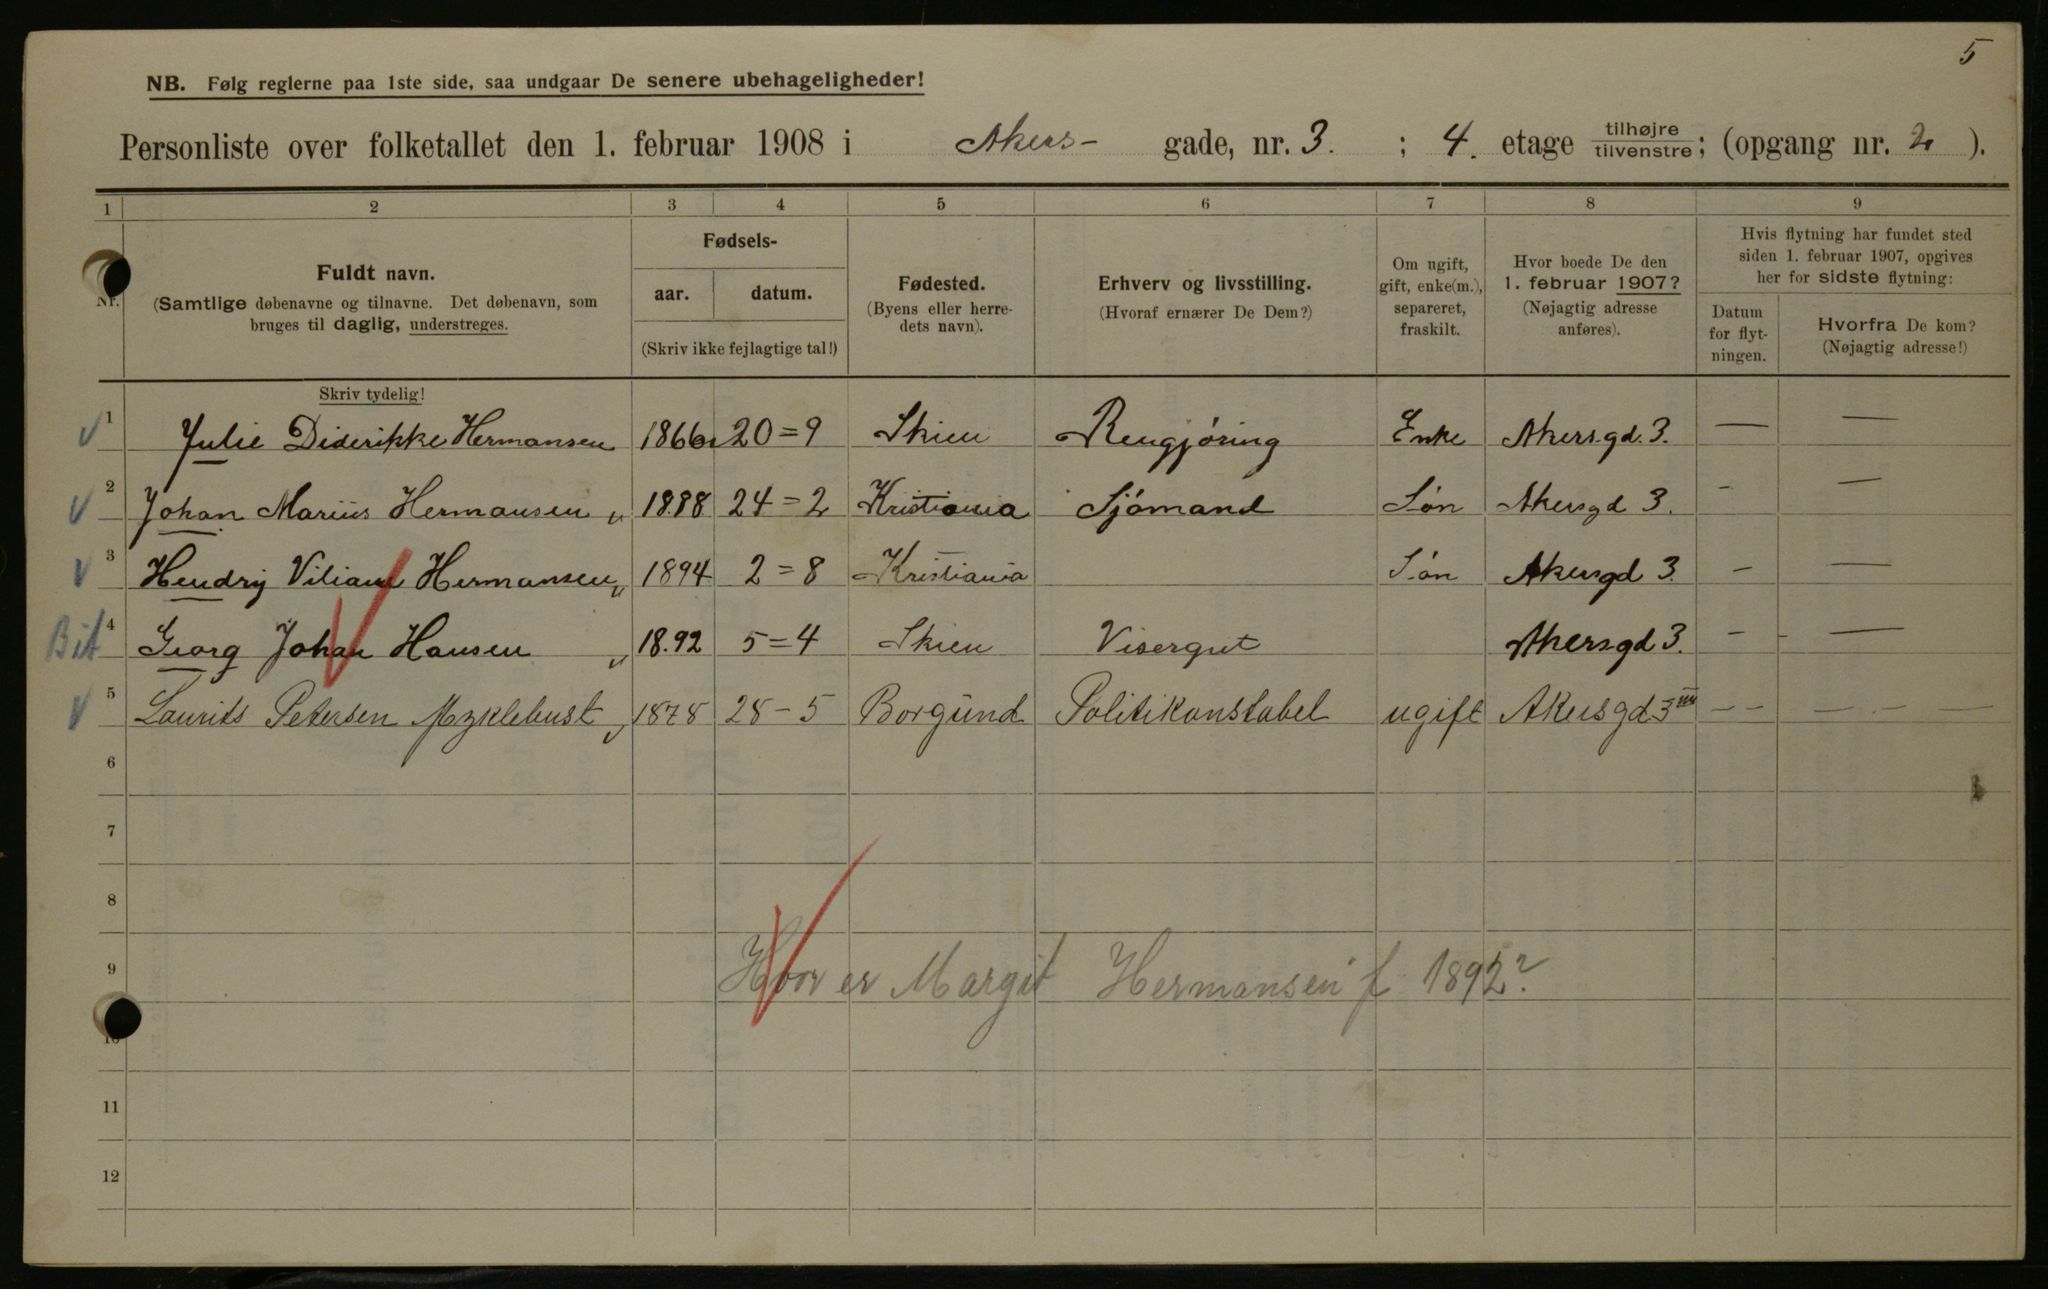 5
NB. Følg reglerne paa 1ste side, saa undgaar De senere ubehageligheder!
Personliste over folketallet den 1. februar 1908 i Akers- gade, nr. 3. ; 4. etage tilhøjre / tilvenstre; (opgang nr. 2 ).
1 2 3 4 5 6 7 8 9
Nr.
Fuldt navn.
(Samtlige døbenavne og tilnavne. Det døbenavn, som
bruges til daglig, understreges.
Skriv tydelig!
Fødsels-
aar. datum.
(Skriv ikke fejlagtige tal!)
Fødested.
(Byens eller herre-
dets navn).
Erhverv og livsstilling.
(Hvoraf ernærer De Dem?)
Om ugift,
gift, enke(m.),
separeret,
fraskilt.
Hvor boede De den
1. februar 1907?
(Nøjagtig adresse
anføres).
Hvis flytning har fundet sted
siden 1. februar 1907, opgives
her for sidste flytning:
Datum
for flyt-
ningen.
Hvorfra De kom?
(Nøjagtig adresse!)
1 Julie Diderikke Hermansen 1866 20=9 Skien Rengjøring Enke Akersgd. 3. — —
2 Johan Marius Hermansen 1888 24=2 Kristiania Sjómand Søn Akersgd 3. - —
3 Hendrij Viliam Hermansen 1894 2=8 Kristiania Søn Akersgd 3. - —
Bit 4 Georg Johan Hansen 18.92 5=4 Skien Visergut Akersgd 3. - - —
5 Laurits Petersen Myklebust 1878 28-5 Borgund Politikonstabel ugift Akersgd 3 IIII — — — - —
6
7
8
9 Hvor er Margit Hermansen f 1892?
10
11
12